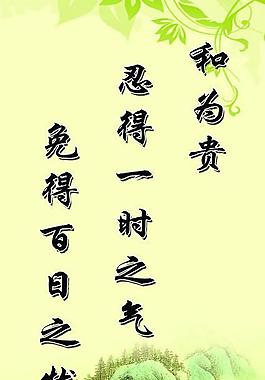 和为贵
忍得一时之气
免得百日之